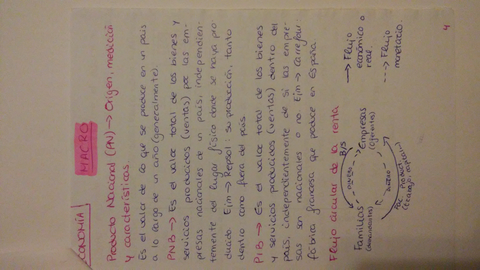 ECONOMÍA!
MACRO
Producto Nacional (PN) → Origen, medición
y características
Es el valor de lo que se produce en un país
a lo largo de un año (generalmente).
PNB → Es el valor total de los bienes y
servicios producidos (ventas) por las em-
presas nacionales de un país, independien-
temente del lugar físico donde se haya pro
ducido Ejm → Repsol: su producción, tanto
dentro como fuera del país.
PIB → Es el valor total de los bienes
y servicios producidos (ventas) dentro del
país, independientemente de si las empre-
sas son nacionales o no Ejm → Carrefour:
fábrica francesa que produce en España
Flujo circular de la renta
B/S
Familias
Empresas
→ Flujo
económico o
real.
---> Flujo
monetario
4